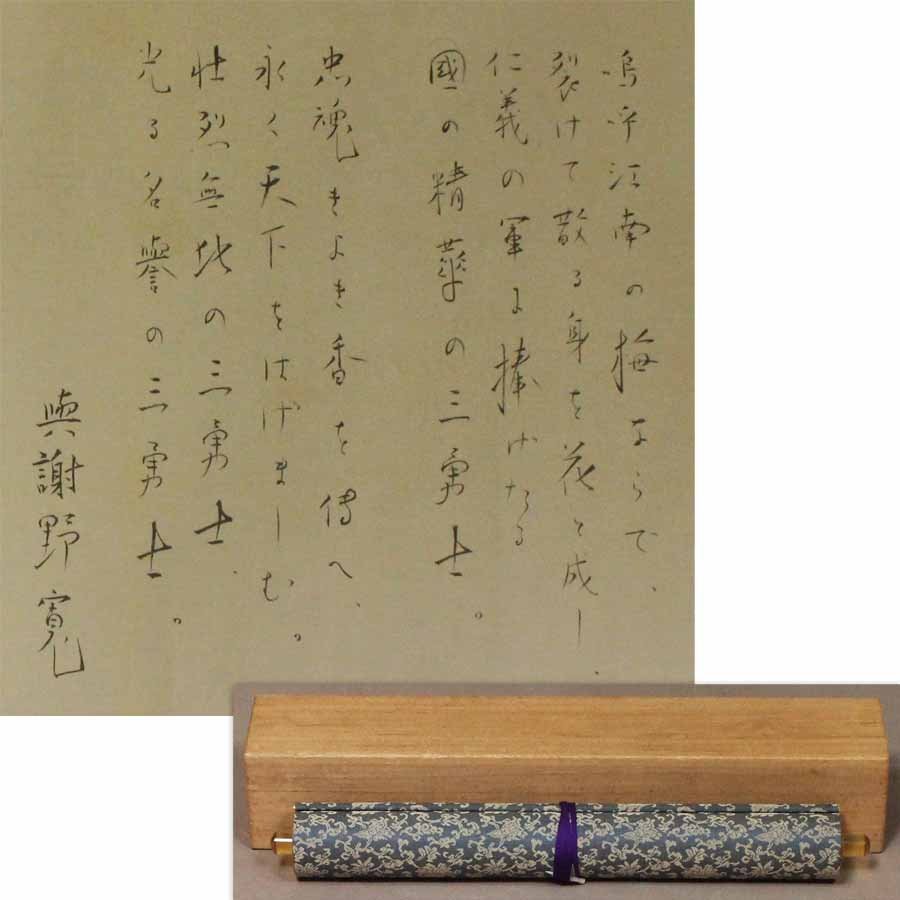 嗚呼江南の梅ならで、
裂けて散る身を花と成し、
仁義の軍に捧げたる
國の精華の三勇士。
忠魂きよき香を傳へ、
永く天下をはげましむ。
壮烈無比の三勇士、
光る名譽の三勇士。
與謝野寛